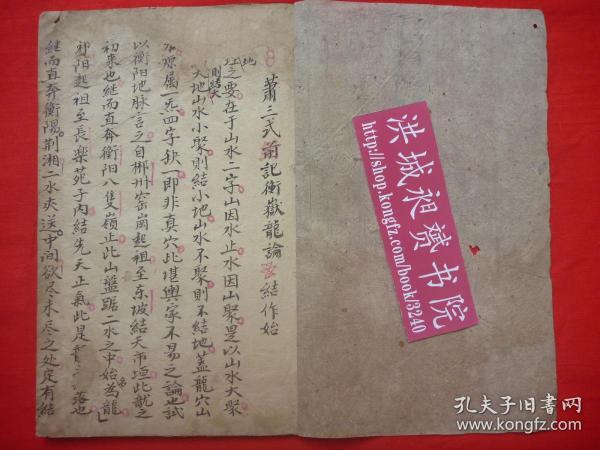 蕭三式前記衡嶽龍論 結作始
地
江之要在于山水二字山因水止水因山聚是以山水大聚
則結大
大地山水小聚則結小地山水不聚則不結地蓋龍穴山
水原属一炁四字缺一即非真穴此堪輿家不易之論也試
以衡阳地脉言之自郴州 崗起祖至东坡結天市垣此龍之
初来也継而直奔衡阳八隻嶺止此山盤踞二水之中始為龍
祁阳起祖至長楽苑子内結先天正氣此是 落也
継而直奔衡陽荆湘二水夾送中间欲尽未尽之处定有結
洪城昶赟书院
http://shop.kongfz.com/book/3240
孔夫子旧书网
www.kongfz.com